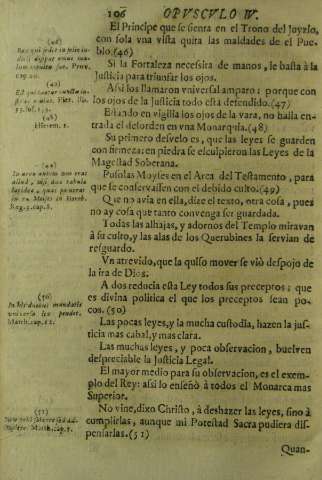 106 OPVSCVLO IV.
El Principe que se sienta en el Trono del Joyzio,
con sola vna vista quita las maldades de el Pue-
blo.(46)
Si la Fortaleza necessita de manos, le basta à la
Justicia para triunfar los ojos.
Assi los llamaron vniversal amparo: porque con
los ojos de la Justicia todo està defendido.(47)
Estando en vigilia los ojos de la vara, no halla en-
trada el desorden en vna Monarquia.(48)
Su primero desvelo es, que las leyes se guarden
con firmeza: en piedra se esculpieron las Leyes de la
Magestad Soberana.
Pusolas Moyses en el Arca del Testamento, para
que se conservassen con el debido culto.(49)
Que no avia en ella, dize el texto, otra cosa, pues
no ay cosa que tanto convenga ser guardada.
Todas las alhajas, y adornos del Templo miravan
à su culto, y las alas de los Querubines la servian de
resguardo.
Vn atrevido, que la quiso mover se viò despojo de
la ira de Dios.
A dos reducia esta Ley todos sus preceptos; que
es divina politica el que los preceptos sean po-
cos.(50)
Las pocas leyes, y la mucha custodia, hazen la jus-
ticia mas cabal, y mas clara.
Las muchas leyes, y poca observacion, buelven
despreciable la Justicia Legal.
El mayor medio para su observacion, es el exem-
plo del Rey: assi lo enseñò à todos el Monarca mas
Superior.
No vine, dixo Christo, à deshazer las leyes, sino à
cumplirlas, aunque mi Potestad Sacra pudiera dis-
pensarlas.(51)
Quan-
(46)
(47)
(48)
Hierem. 1.
(49)
In arca autem non erat
aliud, nisi duæ tabulæ
lapideæ, quas posuerat
in ea Moises in Horeb.
Reg. 3. cap. 8.
(50)
In his duobus mandatis
universa lex pendet.
Matth. cap. 22.
(51)
Non veni solvere sed ad-
implere. Matth. cap. 5.